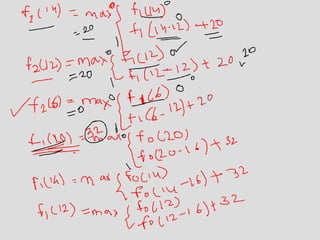 f₂(14) = max { 0 f₁(14) 0
= 20 1 f₁(14-12) 0 + 20
f₂(12) = max { 0 f₁(12) 0
= 20 1 f₁(12-12) + 20 20
✓ f₂(6) = max { 0 f₁(6) 0
= 0 1 f₁(6-12) + 20
f₁(20) = 32 max { 0 f₀(20)
1 f₀(20-16) + 32
f₁(14) = max { f₀(14)
f₀(14-16) + 32
f₁(12) = max { f₀(12)
f₀(12-16) + 32